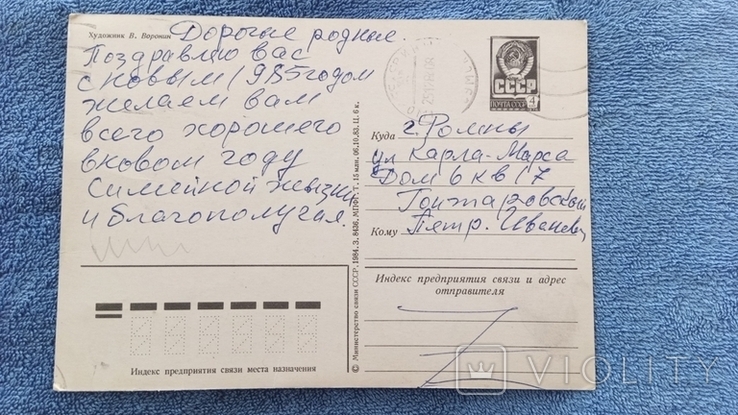 Художник В. Воронин
Дорогие родные.
Поздравляю вас
с новым 1985годом
желаем вам
всего хорошего
вковом году
симейной жызни
и благополучая.
СССР
ПОЧТА СССР
4
Куда г. Ромны
ул Карла-Маркса
Дом 6 кв 17
Гонтаровский
Кому Петр. Иванович
Индекс предприятия связи и адрес
отправителя
© Министерство связи СССР, 1984. З. 8436. МПФГ. Т. 15 млн. 06.10.83. Ц. 6 к.
Индекс предприятия связи места назначения
VIOLITY